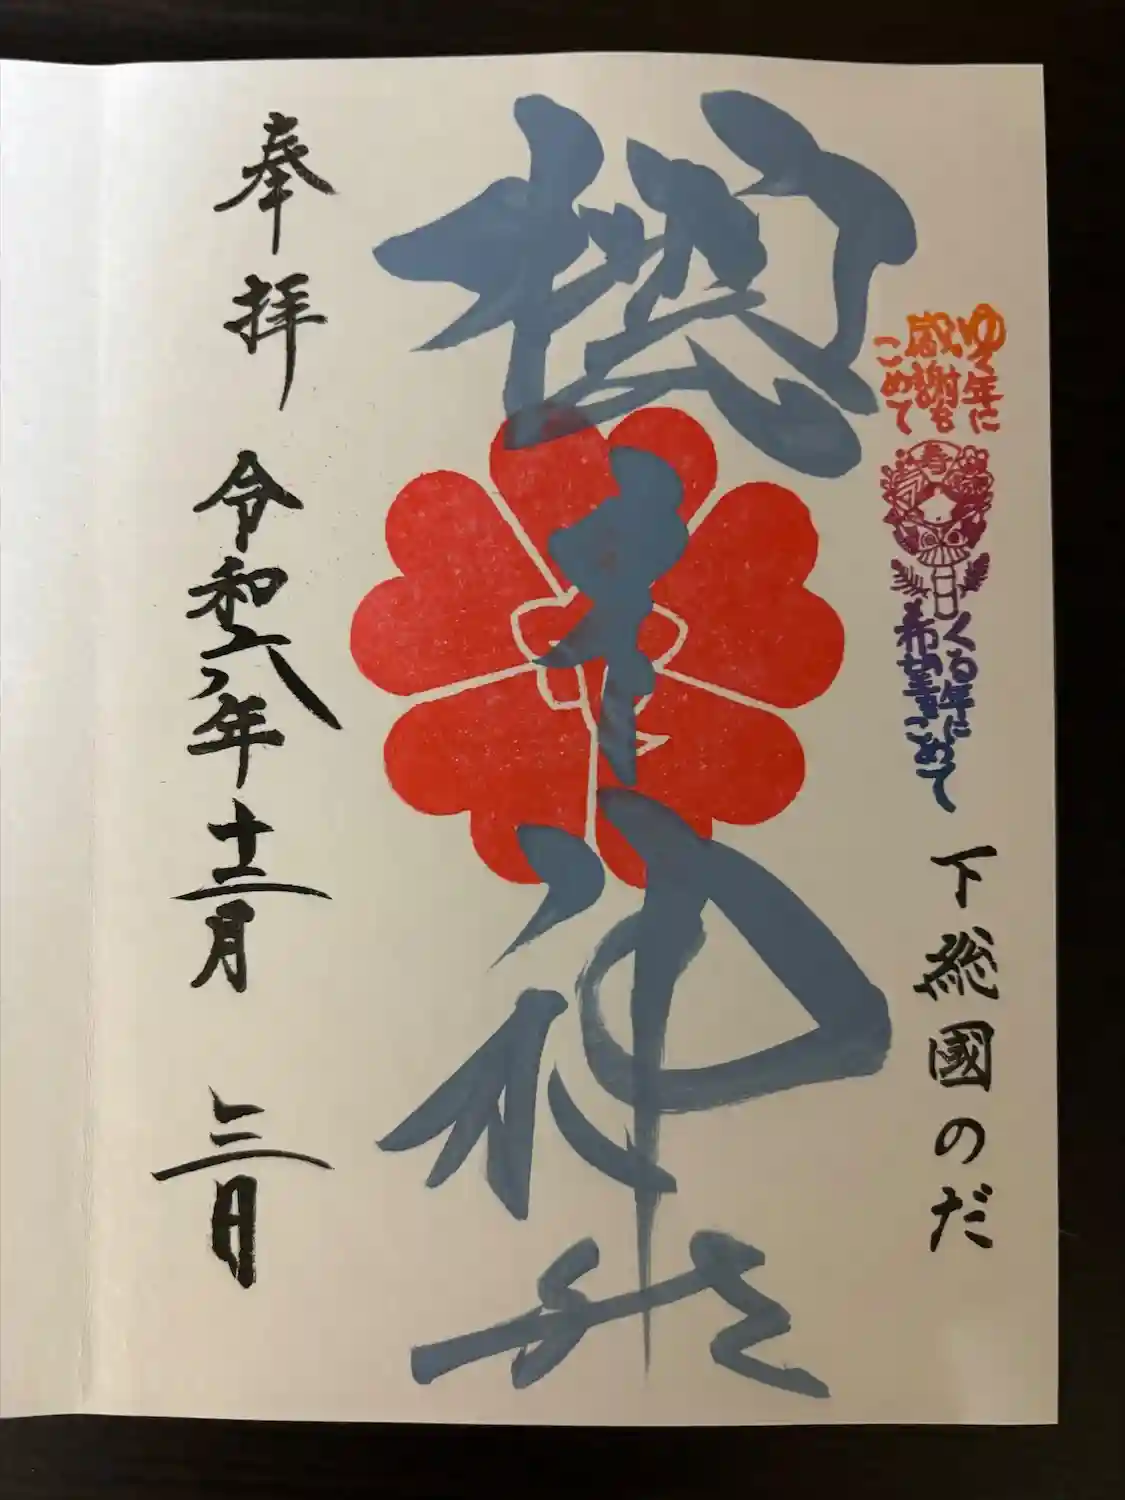 ゆく年に
感謝を
こめて
春
くる年に
希望をこめて
下総國のだ
櫻木神社
奉拝 令和六年十二月 三日